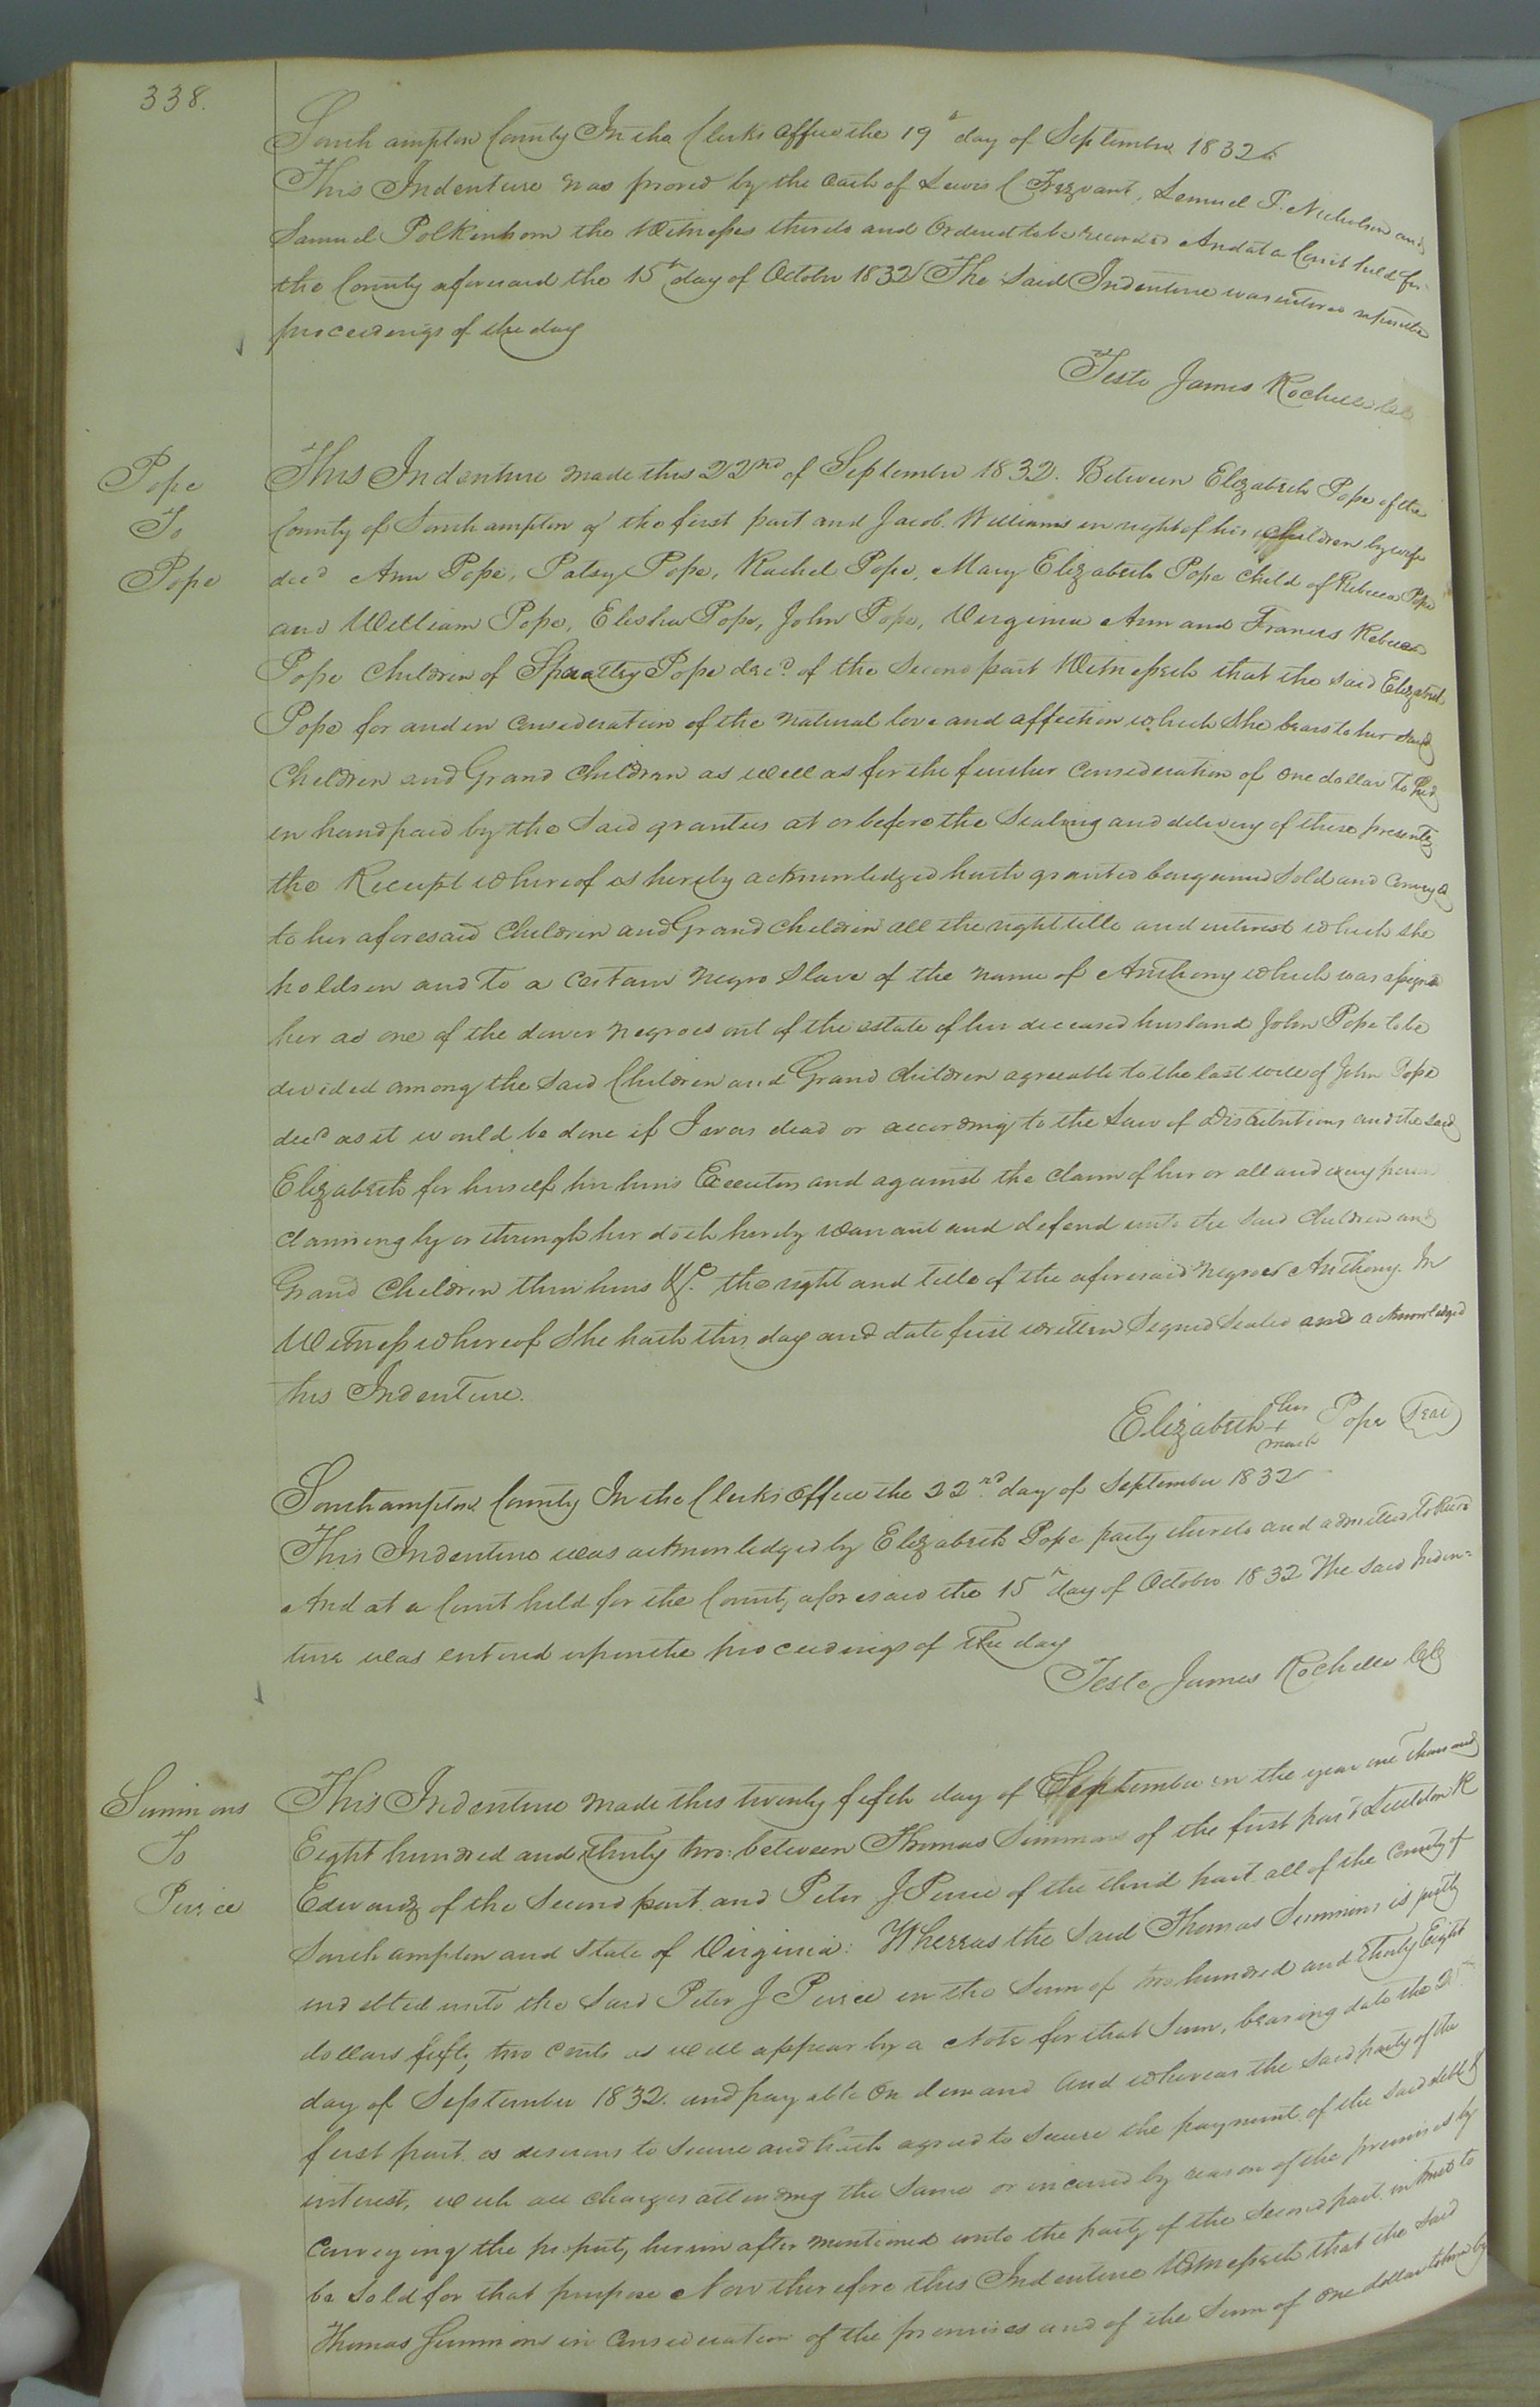 338.
Southampton County In the Clerks Office the 19th day of September 1832
This Indenture was proved by the oath of Lewis C Trezvant, Lemuel P. Nicholson and
Samuel Polkinhorn the Witnesses thereto and Ordered to be recorded And at a Court held for
the County aforesaid the 15th day of October 1832 The said Indenture was entered upon the
proceedings of the day
Teste James Rochelle Clk
Pope
To
Pope
This Indenture made this 22nd of September 1832. Between Elizabeth Pope of the
County of Southampton of the first part and Jacob. Williams in right of his children by wife
decd Ann Pope, Patsy Pope, Rachel Pope, Mary Elizabeth Pope child of Rebecca Pope
and William Pope, Elisha Pope, John Pope, Virginia Ann and Frances Rebecca
Pope Children of Spratley Pope decd. of the Second part Witnesseth that the said Elizabeth
Pope for and in consideration of the natural love and affection which She bears to her said
Children and Grand Children as well as for the further consideration of one dollar To her
in hand paid by the said grantees at or before the Sealing and delivery of these presents
the Receipt whereof is hereby acknowledged hath granted bargained Sold and Conveyd
to her aforesaid Children and Grand Children all the right title and interest which she
holds in and To a certain negro Slave of the name of Anthony which was assigned
her as one of the dower negroes out of the estate of her deceased husband John Pope to be
divided among the said Children and Grand Children agreeable to the last will of John Pope
decd as it would be done if I was dead or according to the Law of distributions and the said
Elizabeth for herself her heirs Executors and against the claim of her or all and every person
claiming by or through her doth hereby warrant and defend unto the said Children and
Grand Children their heirs &c. the right and title of the aforesaid negroe Anthony. In
Witness whereof She hath this day and date first written Signed Sealed and acknowledged
this Indenture.
Elizabeth her + mark Pope Seal
Southampton County In the Clerks Office the 22nd. day of September 1832
This Indenture was acknowledged by Elizabeth Pope party thereto and admitted To Record
And at a Court held for the County aforesaid the 15th day of October 1832 The said Inden=
ture was entered upon the proceedings of the day
Teste James Rochelle Clk
Simmons
To
Peirce
This Indenture made this twenty fifth day of September in the year one thousand
Eight hundred and thirty two: between Thomas Simmons of the first part Littleton R
Edwards of the Second part and Peter J Peirce of the third part all of the County of
Southampton and State of Virginia: Whereas the said Thomas Simmons is justly
indebted unto the said Peter J Peirce in the Sum of two hundred and thirty Eight
dollars fifty two cents as will appear by a Note for that Sum, bearing date the
day of September 1832. and payable on demand And whereas the said party of the
first part is desirous to secure and hath agreed to secure the payment of the said debt &
interest, with all charges attending the same or incured by reason of the premises by
Conveying the property herein after mentioned unto the party of the second part in trust to
be Sold for that purpose Now therefore this Indenture Witnesseth that the said
Thomas Simmons in consideration of the premises and of the Sum of one dollar to him by